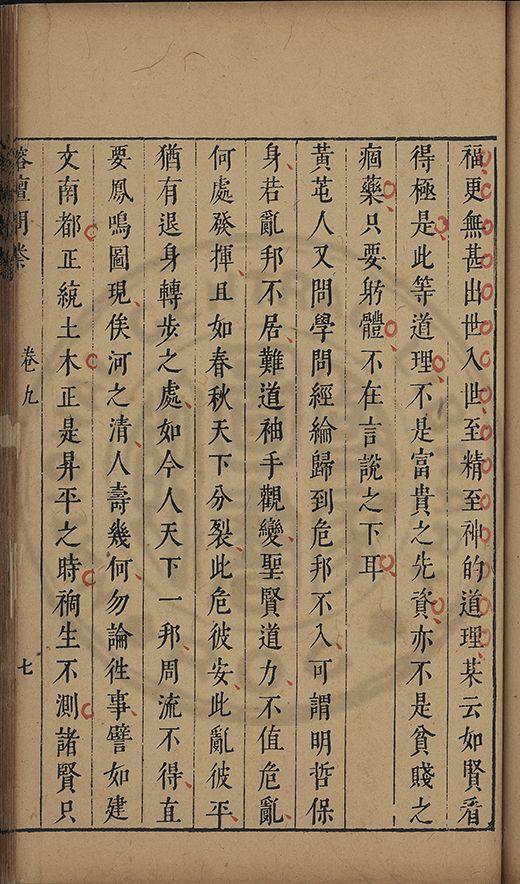 福更無甚出世入世至精至神的道理某云如賢看
得極是此等道理不是富貴之先資亦不是貧賤之
痼藥只要躬體不在言說之下耳
黃苊人又問學問經綸歸到危邦不入可謂明哲保
身若亂邦不居難道袖手觀變聖賢道力不值危亂
何處發揮且如春秋天下分裂此危彼安此亂彼平
猶有退身轉步之處如今人天下一邦周流不得直
要鳳鳴圖現俟河之清人壽幾何勿論徃事譬如建
文南都正統土木正是昇平之時禍生不測諸賢只
榕壇問業
卷九
七